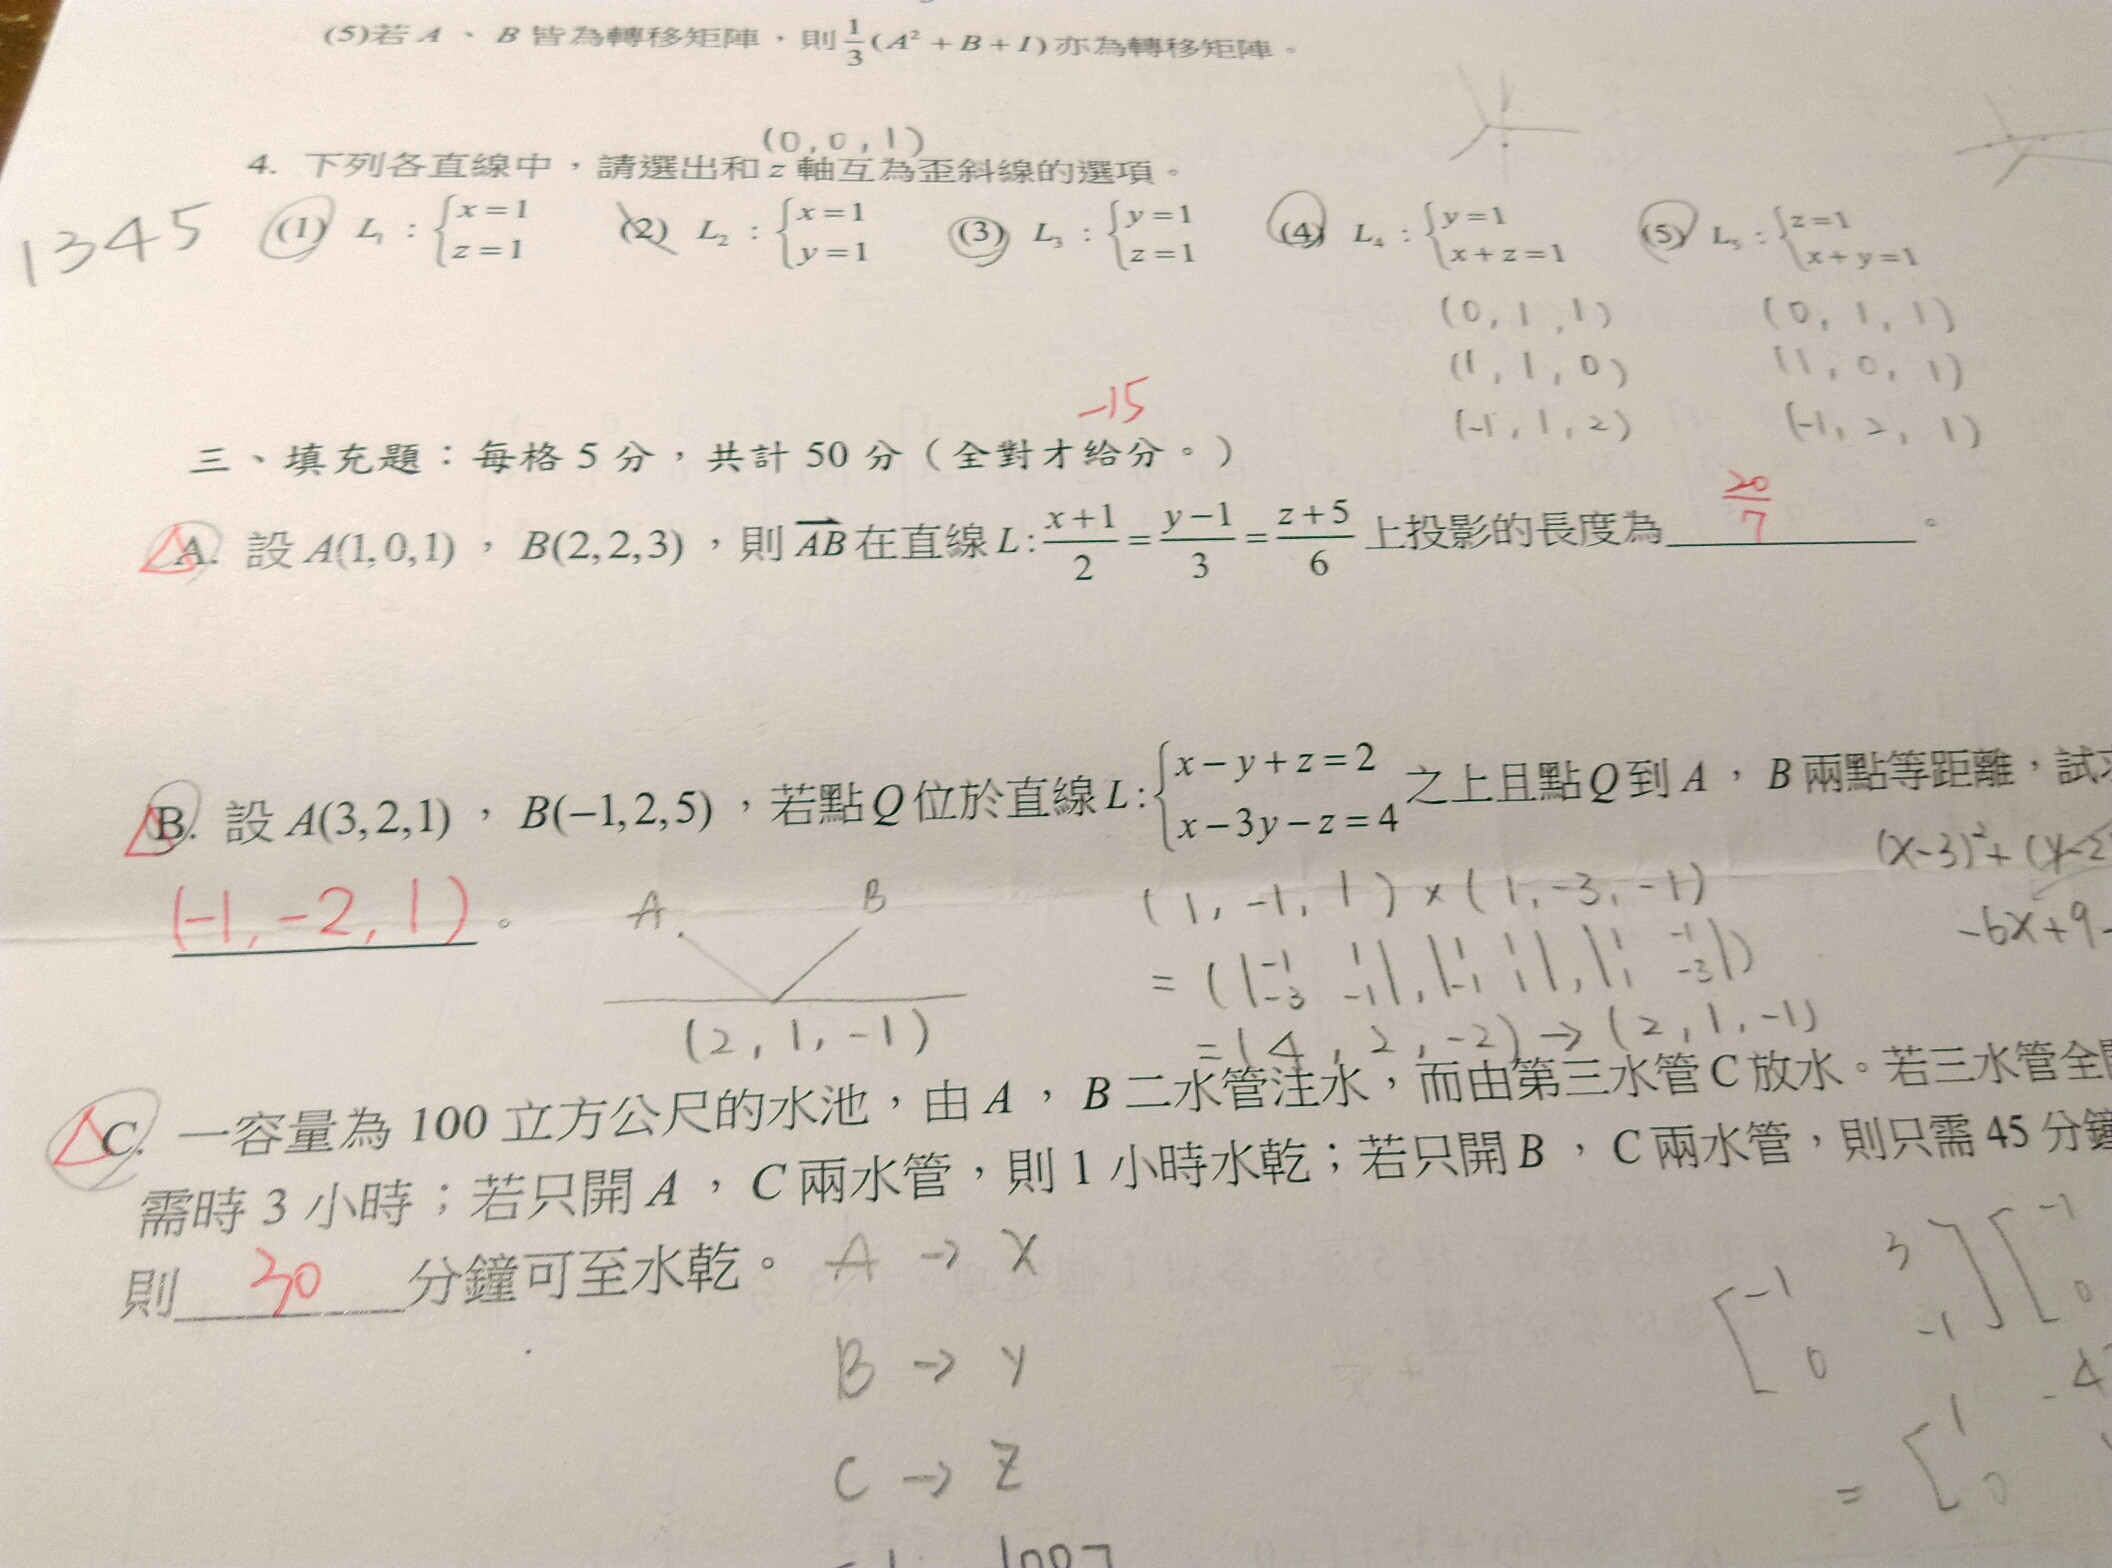 (5)若 A 、 B 皆為轉移矩陣，則 1/3 (A² + B + I) 亦為轉移矩陣。
(0,0,1)
4. 下列各直線中，請選出和 z 軸互為歪斜線的選項。
1345 (1) L₁ : {x=1 z=1 (2) L₂ : {x=1 y=1 (3) L₃ : {y=1 z=1 (4) L₄ : {y=1 x+z=1 (5) L₅ : {z=1 x+y=1
(0,1,1) (0,1,1)
(1,1,0) (1,0,1)
(-1,1,2) (-1,2,1)
-15
三、填充題：每格 5 分，共計 50 分（全對才給分。）
A. 設 A(1,0,1) ， B(2,2,3) ，則 AB 在直線 L: (x+1)/2 = (y-1)/3 = (z+5)/6 上投影的長度為 20/7 。
B. 設 A(3,2,1) ， B(-1,2,5) ，若點 Q 位於直線 L: {x-y+z=2 x-3y-z=4 之上且點 Q 到 A ， B 兩點等距離，試
(x-3)²+(y-2
(-1,-2,1) 。 A B (1,-1,1)×(1,-3,-1)
-6x+9-
=(|-1 1 -3 -1|,|1 1 -1 1|,|1 -1 1 -3|)
(2,1,-1) =(4,2,-2)→(2,1,-1)
C. 一容量為 100 立方公尺的水池，由 A ， B 二水管注水，而由第三水管 C 放水。若三水管全
需時 3 小時；若只開 A ， C 兩水管，則 1 小時水乾；若只開 B ， C 兩水管，則只需 45 分鐘
則 30 分鐘可至水乾。 A → x
B → y
C → z
[-1 3 0 -1] [-1 0
= [1 -4 0